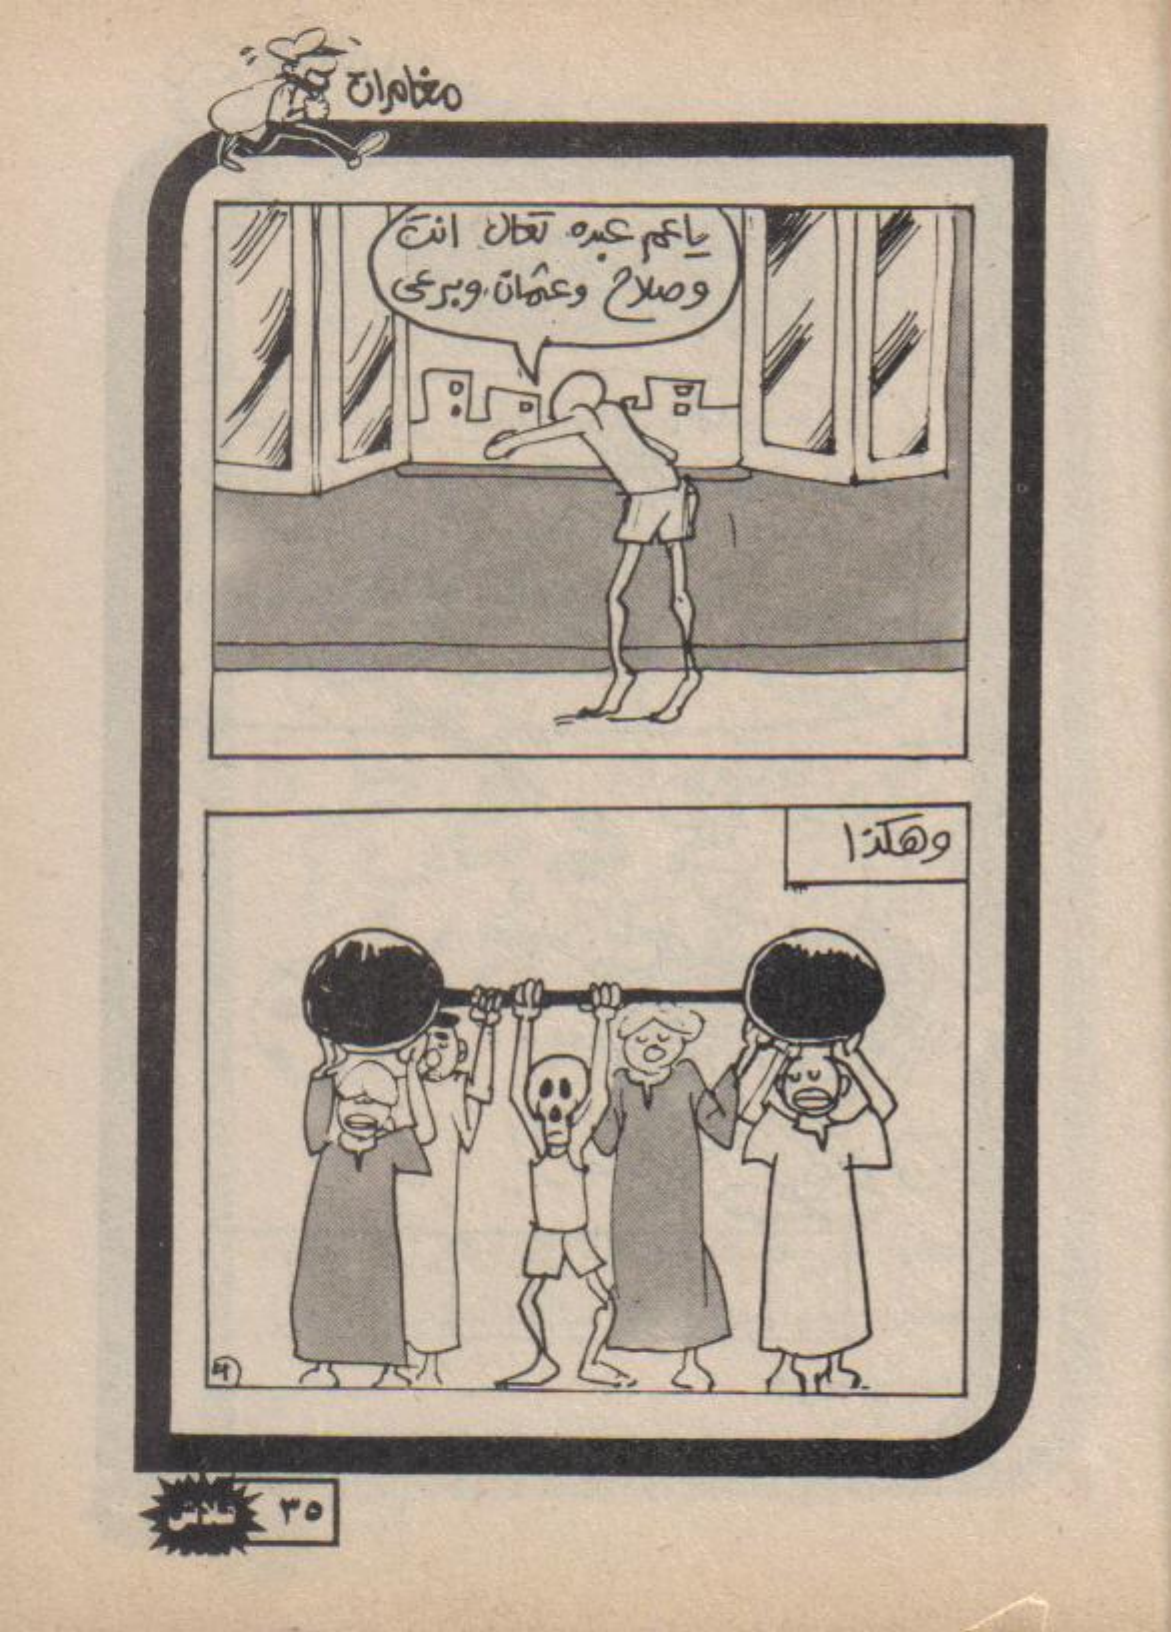 مغامرات
يا عم عبده تعال انت
وصلاح وعثمان وبرعى
وهكذا
٣٥
فلاش